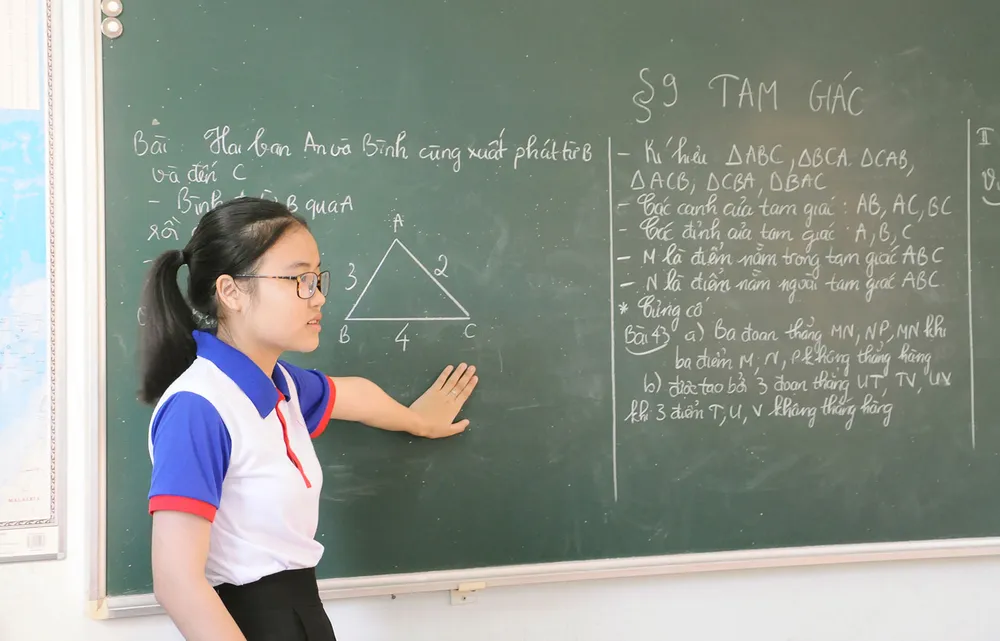 §9 TAM GIÁC
Bài: Hai bạn An và Bình cùng xuất phát từ B
và đến C
- Bình B qua A
A
3 2
B 4 C
- Kí hiệu ΔABC, ΔBCA. ΔCAB,
ΔACB, ΔCBA, ΔBAC
- Các cạnh của tam giác: AB, AC, BC
- Các đỉnh của tam giác: A, B, C
- M là điểm nằm trong tam giác ABC
- N là điểm nằm ngoài tam giác ABC.
* Củng cố
Bài 43 a) Ba đoạn thẳng MN, NP, MN khi
ba điểm M, N, P không thẳng hàng
b) được tạo bởi 3 đoạn thẳng UT, TV, UV
khi 3 điểm T, U, V không thẳng hàng
II
MALAYSIA